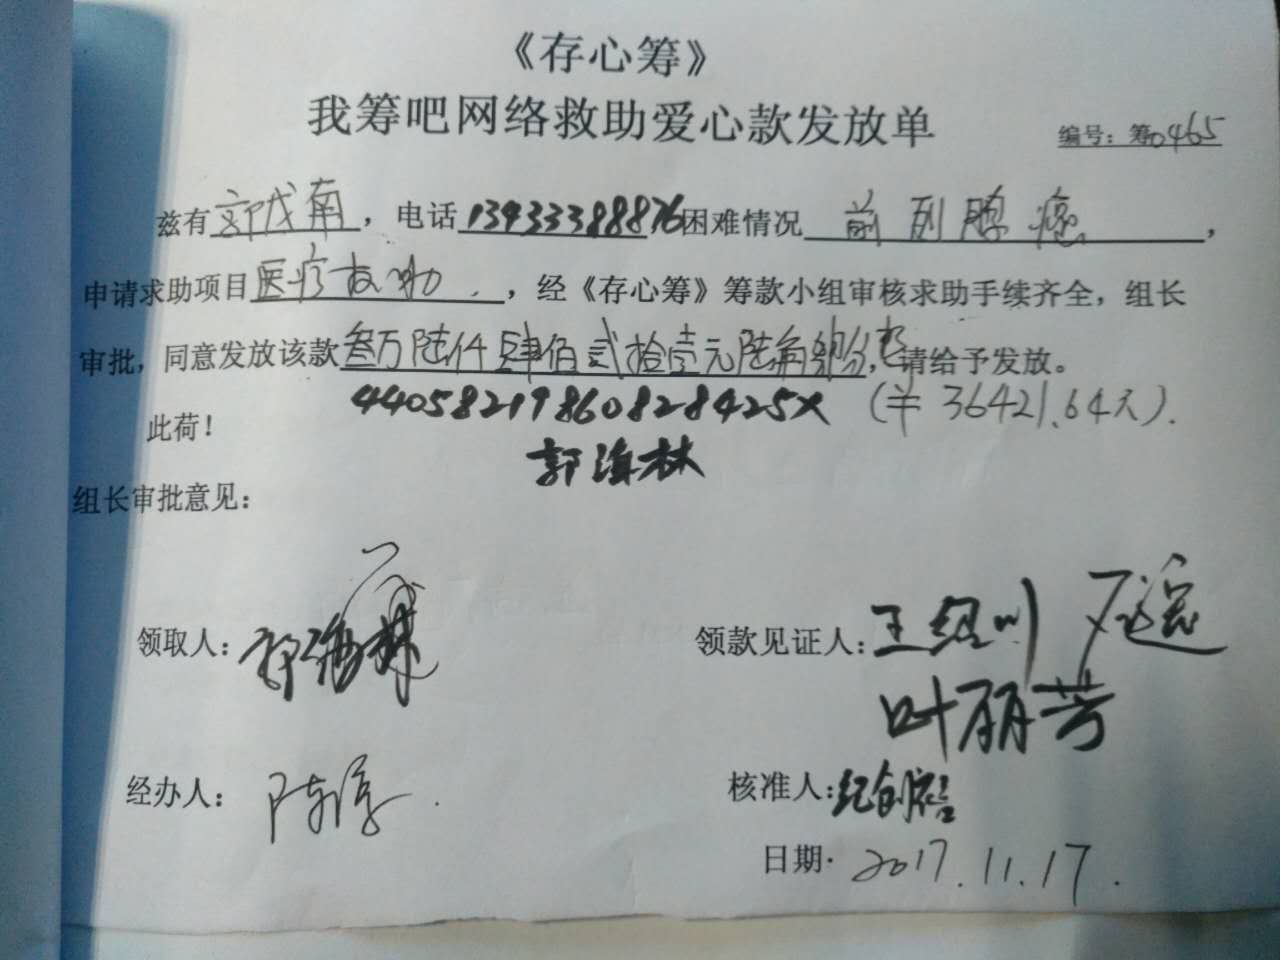 《存心筹》
我筹吧网络救助爱心款发放单
编号：筹0465
兹有郭戊南，电话13433388876困难情况前列腺癌，
申请求助项目医疗救助，经《存心筹》筹款小组审核求助手续齐全，组长
审批，同意发放该款叁万陆仟肆佰贰拾壹元陆角肆分，请给予发放。
此荷！
44058219860828425X （¥36421.64元）.
郭海林
组长审批意见：
领取人：郭海林
领款见证人：王绍川
叶丽芳
经办人：陈淳
核准人：纪创裕
日期：2017.11.17.